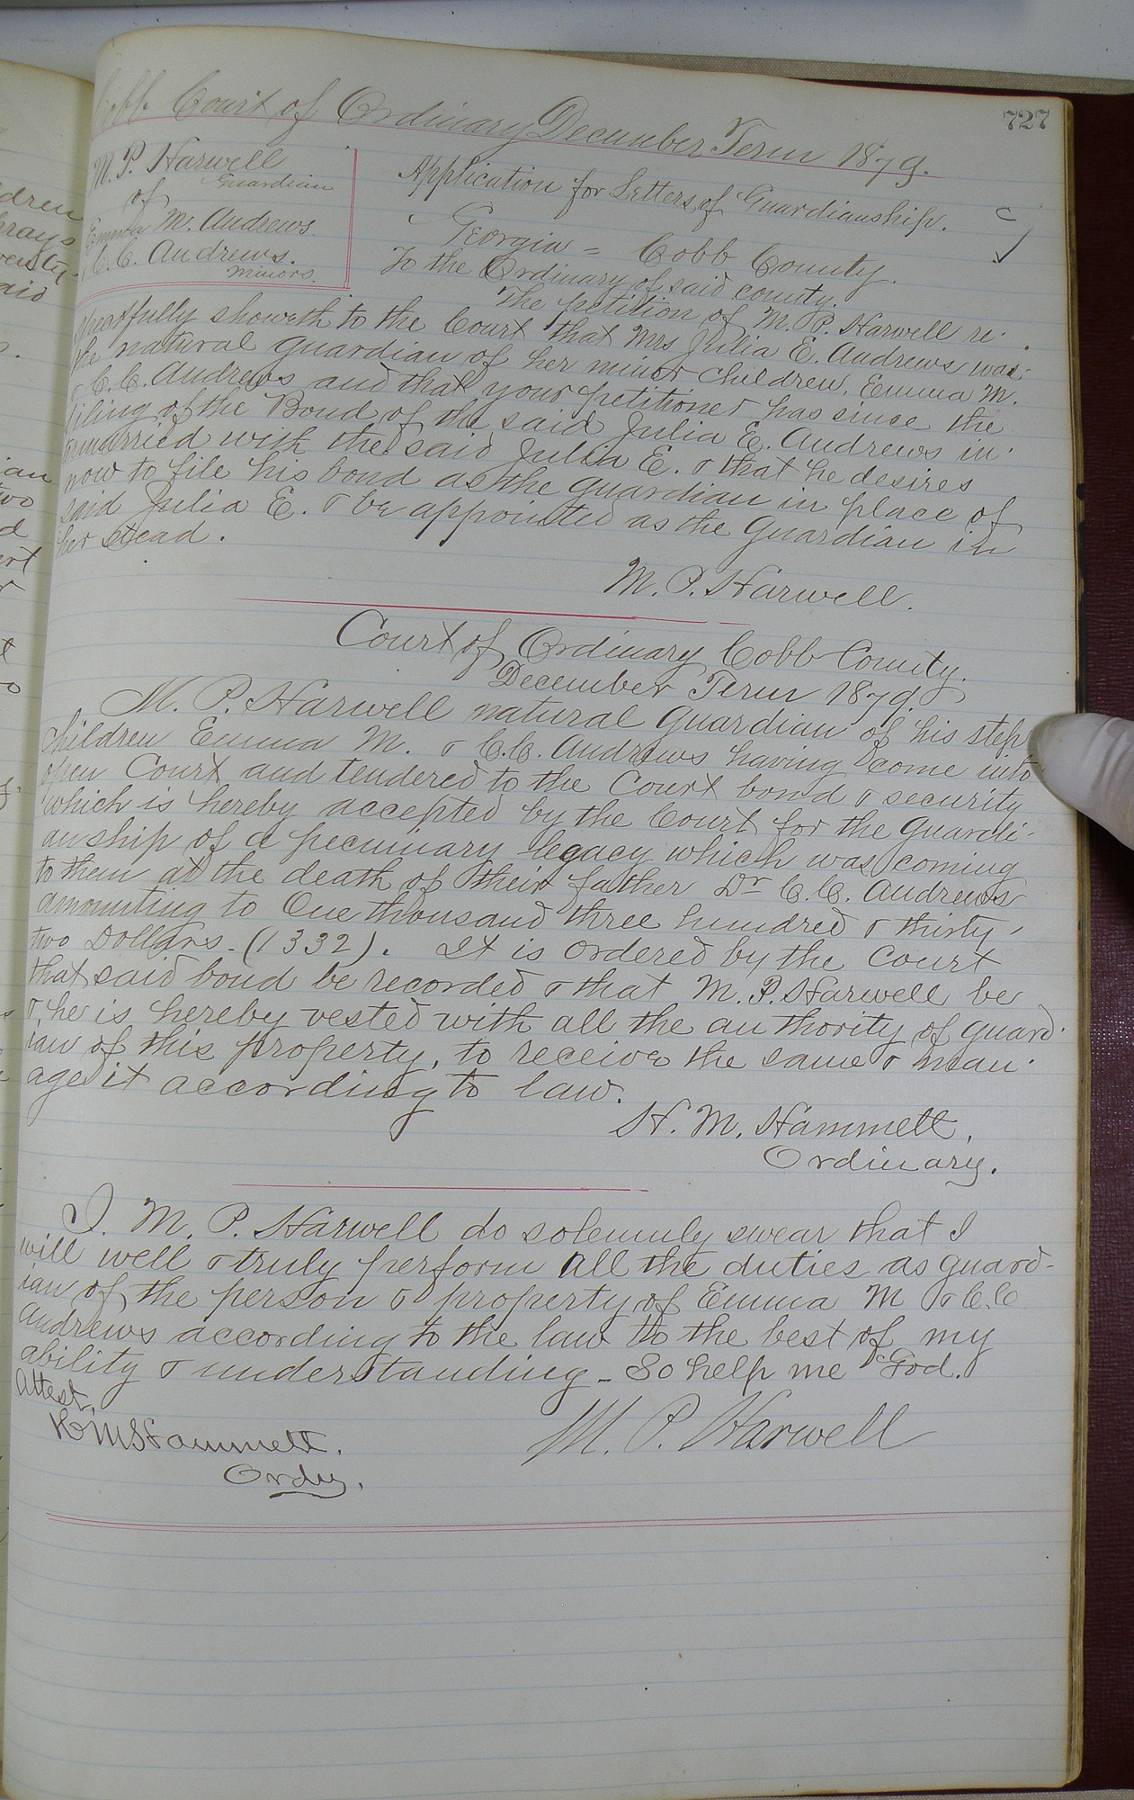 727
Cobb Court of Ordinary December Term 1879.
M. P. Harwell
Guardian
of
Emma M. Andrews
C. C. Andrews.
Minors.
Application for Letters of Guardianship.
Georgia = Cobb County.
To the Ordinary of said county.
The petition of M. P. Harwell re-
spectfully showeth to the Court that Mrs Julia E. Andrews was
the natural guardian of her minor children, Emma M.
& C. C. Andrews and that your petitioner has since the
filing of the Bond of the said Julia E. Andrews in-
termarried with the said Julia E. & that he desires
now to file his bond as the guardian in place of
said Julia E. & be appointed as the Guardian in
her stead.
M. P. Harwell.
Court of Ordinary Cobb County.
December Term 1879.
M. P. Harwell natural guardian of his step
children Emma M. & C. C. Andrews having come into
open Court and tendered to the Court bond & security
which is hereby accepted by the Court for the Guardi-
anship of a pecuniary legacy which was coming
to them at the death of their father Dr C. C. Andrews
amounting to One thousand three hundred & thirty
two Dollars - (1332). It is ordered by the Court
that said bond be recorded & that M. P. Harwell be
& he is hereby vested with all the authority of guard-
ian of this property, to receive the same & man-
age it according to law.
H. M. Hammett,
Ordinary.
I. M. P. Harwell do solemnly swear that I
will well & truly perform all the duties as guard-
ian of the person & property of Emma M & C. C
Andrews according to the law to the best of my
ability & understanding - So help me God.
Attest,
H M Hammett.
Ordy.
M. P. Harwell